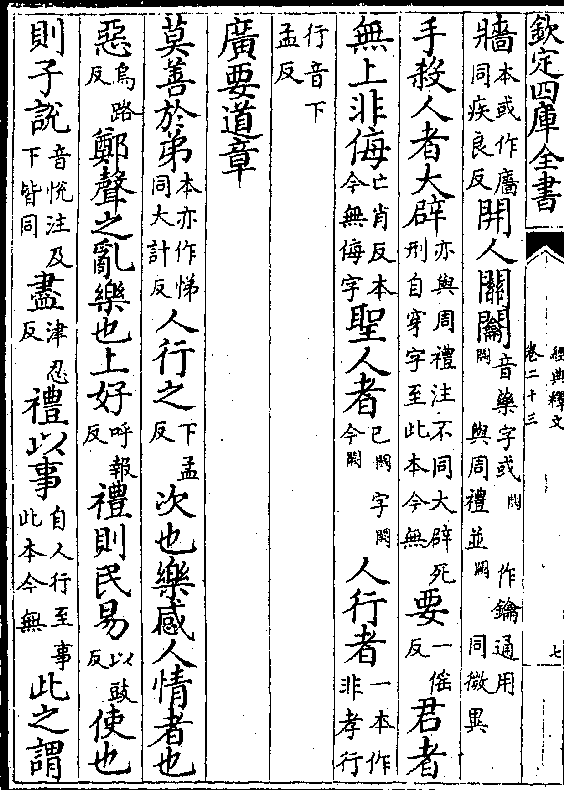 欽定四庫全書
經典釋文
卷二十三
七
牆本或作廧同疾良反開人關闟闕音藥字或闕作鑰通用與周禮並闕同微異
手殺人者大辟亦與周禮注不同大辟死刑自穿字至此本今無要一傜反君者
無上非侮亡肖反本今無侮字聖人者已闕字闕今闕人行者一本作非孝行
行音下孟反
廣要道章
莫善於弟本亦作悌同大計反人行之下孟反次也樂感人情者也
惡烏路反鄭聲之亂樂也上好呼報反禮則民易以豉反使也
則子說音悅注及下皆同盡津忍反禮以事自人行至事此本今無此之謂